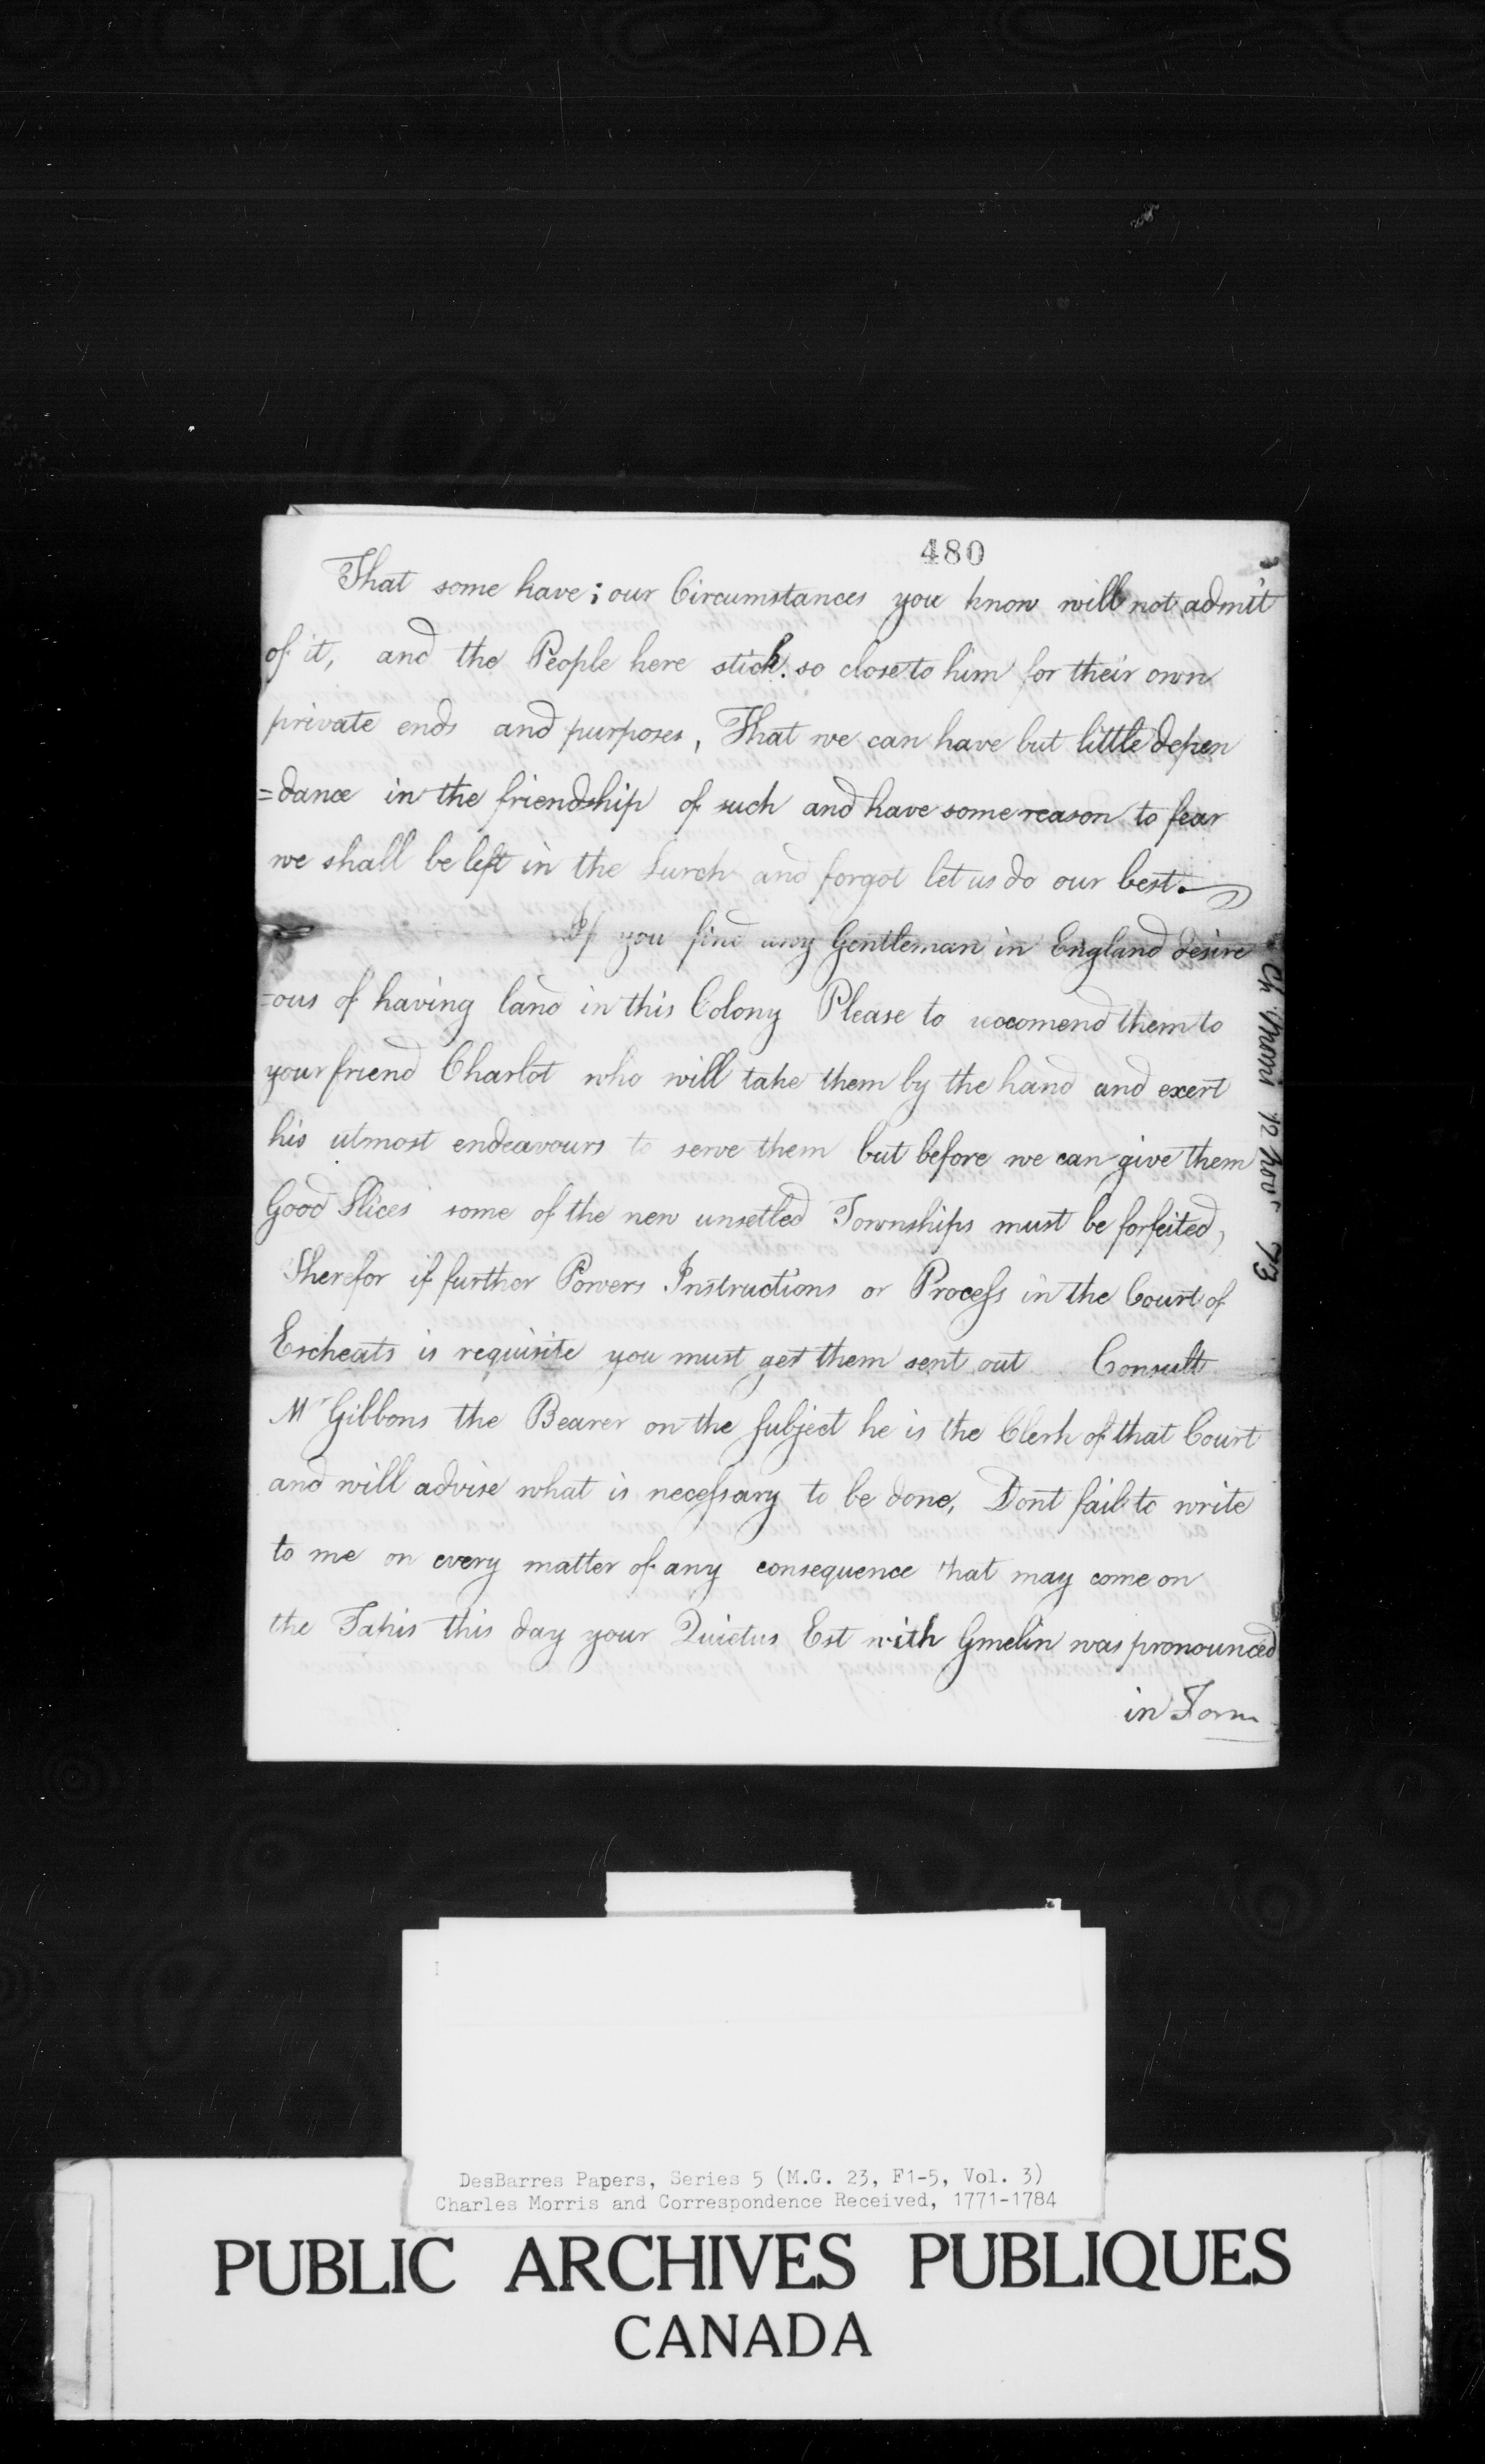 480
That some have; our Circumstances you know will not admit
of it, and the People here stick so close to him for their own
private ends and purposes, That we can have but little depen
=dance in the friendship of such and have some reason to fear
we shall be left in the Lurch and forgot let us do our best.
If you find any Gentleman in England desire
=ous of having land in this Colony Please to recomend them to
your friend Charlot who will take them by the hand and exert
his utmost endeavours to serve them but before we can give them
Good Slices some of the new unsetled Townships must be forfeited,
Therefor if further Powers Instructions or Process in the Court of
Escheats is requisite you must get them sent out Consult
Mr Gibbons the Bearer on the Subject he is the Clerk of that Court
and will advise what is necessary to be done, Dont fail to write
to me on every matter of any consequence that may come on
the Tapis this day your Quietus Est with Gmelin was pronounced
in Form
Ch Morris 12 Novr 73
DesBarres Papers, Series 5 (M.G. 23, F1-5, Vol. 3)
Charles Morris and Correspondence Received, 1771-1784
PUBLIC ARCHIVES PUBLIQUES
CANADA